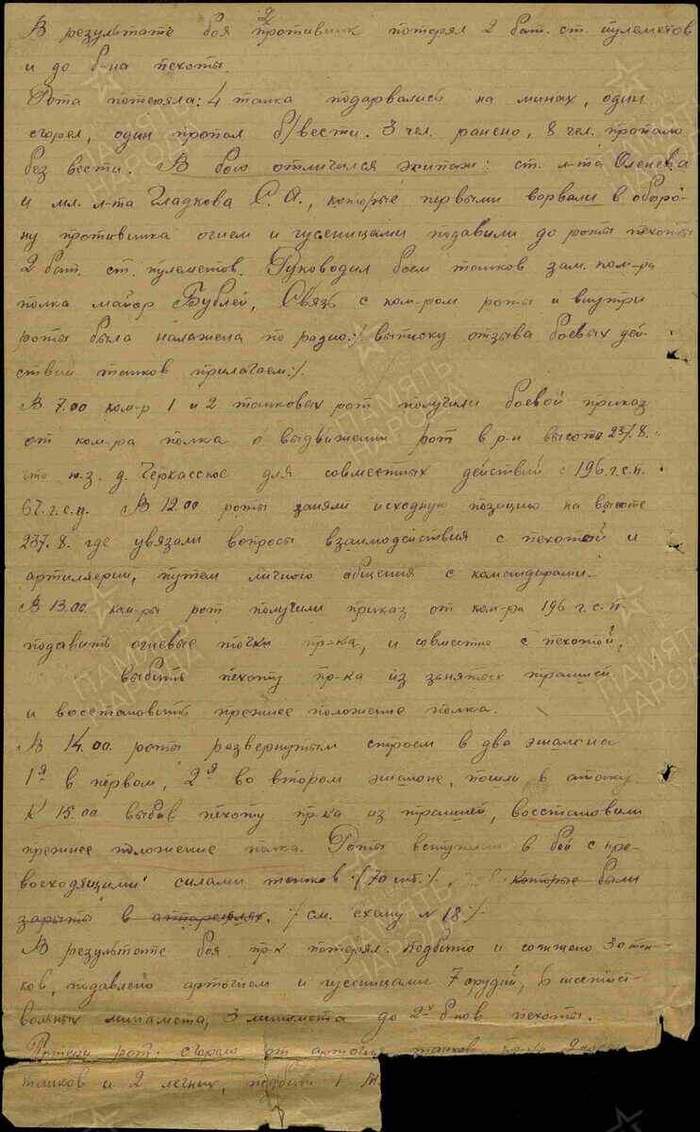 2
В результате боя противник потерял 2 бат. ст. пулеметов
и до б-на пехоты.
Рота потеряла: 4 танка подорвались на минах, один
сгорел, один пропал б/вести. 3 чел. ранено, 8 чел. пропало
без вести. В бою отличился экипаж: ст. л-та
и мл. л-та Гладкова С. А., которые первыми ворвали в оборо-
ну противника огнем и гусеницами подавили до роты пехоты
2 бат. ст. пулеметов. Руководил боем танков зам. ком-ра
полка майор Бублей, Связь с ком-ром роты и внутри
роты была налажена по радио. /. выписку отзыва боевых дей-
ствий танков прилагаем: /.
В 7.00 ком-р 1 и 2 танковых рот получили боевой приказ
от ком-ра полка о выдвижении рот в р-н высота 237.8.
что ю.з. д. Черкасское для совместных действий с 196 г.с.п.
67. г.с.д. В 12.00 роты заняли исходную позицию на высоте
237.8. где увязали вопросы взаимодействия с пехотой и
артиллерии, путем личного общения с командирами.
В 13.00. ком-ры рот получили приказ от ком-ра 196 г.с.п.
подавить огневые точки пр-ка, и совместно с пехотой,
выбить пехоту пр-ка из занятых траншей
и восстановить прежнее положение полка.
В 14.00. роты развернутым строем в два эшалона
1я в первом, 2я во втором эшалоне, пошли в атаку
К 15.00 выбив пехоту пр-ка из траншей, восстановили
прежнее положение полка. Роты вступили в бой с пре-
восходящими силами танков /70 шт./. которые были
зарыты в /см. схему №18/
В результате боя пр-к потерял. Подбито и сожжено 30 тан-
ков, подавлено артогнем и гусеницами 7 орудий,
миномета, 3 миномета до 2х б-нов пехоты.
рот. сгорело от артогня танков пр-ка 2
танков и 2 легких, подбит 1